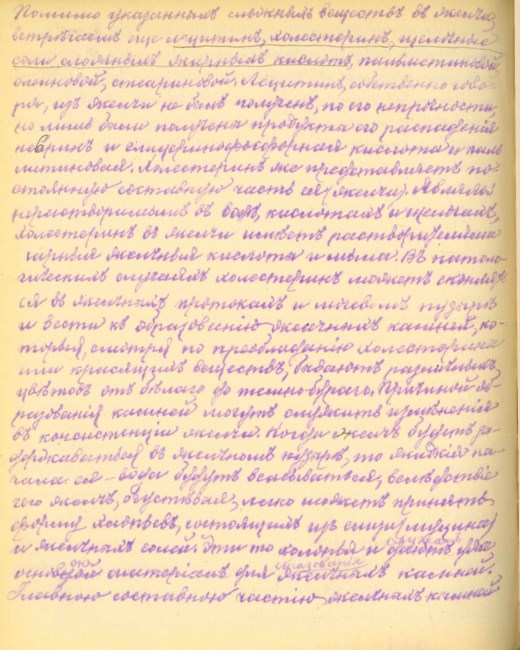 Помимо указанныхъ сложныхъ веществъ въ желчи
встрѣчаемъ еще лецитинъ, холестеринъ, щелочные
соли жирныхъ кислотъ, пальмитиновой,
олеиновой, стеариновой. Лецитинъ, собственно гово-
ря, изъ желчи не былъ полученъ, по его непрочности,
но лишь были получены продукты его распаденія
невринъ и глицеринофосфорная кислота и паль
митиновая. Холестеринъ же представляетъ по-
стоянную составную часть ея (желчи). Являясь
нерастворимымъ въ водѣ, кислотахъ и щелочахъ,
холестеринъ въ желчи имѣетъ
желчныя кислоты и мыла. Въ патоло-
гическихъ случаяхъ холестеринъ можетъ скоплят
ся въ желчныхъ протокахъ и пузырѣ
и вести къ образованію желчныхъ камней, ко-
торые, смотря по преобладанію холестерина
или красящихъ веществъ, бываютъ различныхъ
цвѣтовъ отъ бѣлаго до темно-бураго. Причиной об-
разованія камней могутъ служить измѣненія
въ консистенціи желчи. Когда желчь будетъ за-
держиваться въ желчномъ пузырѣ, то жидкія на-
чала ея - вода будутъ всасываться, вслѣдствіе
чего желчь, сгустѣвая, легко можетъ принять
форму хлопьевъ, состоящихъ изъ слизи
и желчныхъ солей. Эти то хлопья и служатъ
основой матеріаломъ для образованія желчныхъ камней.
Главною составною частію желчныхъ камней